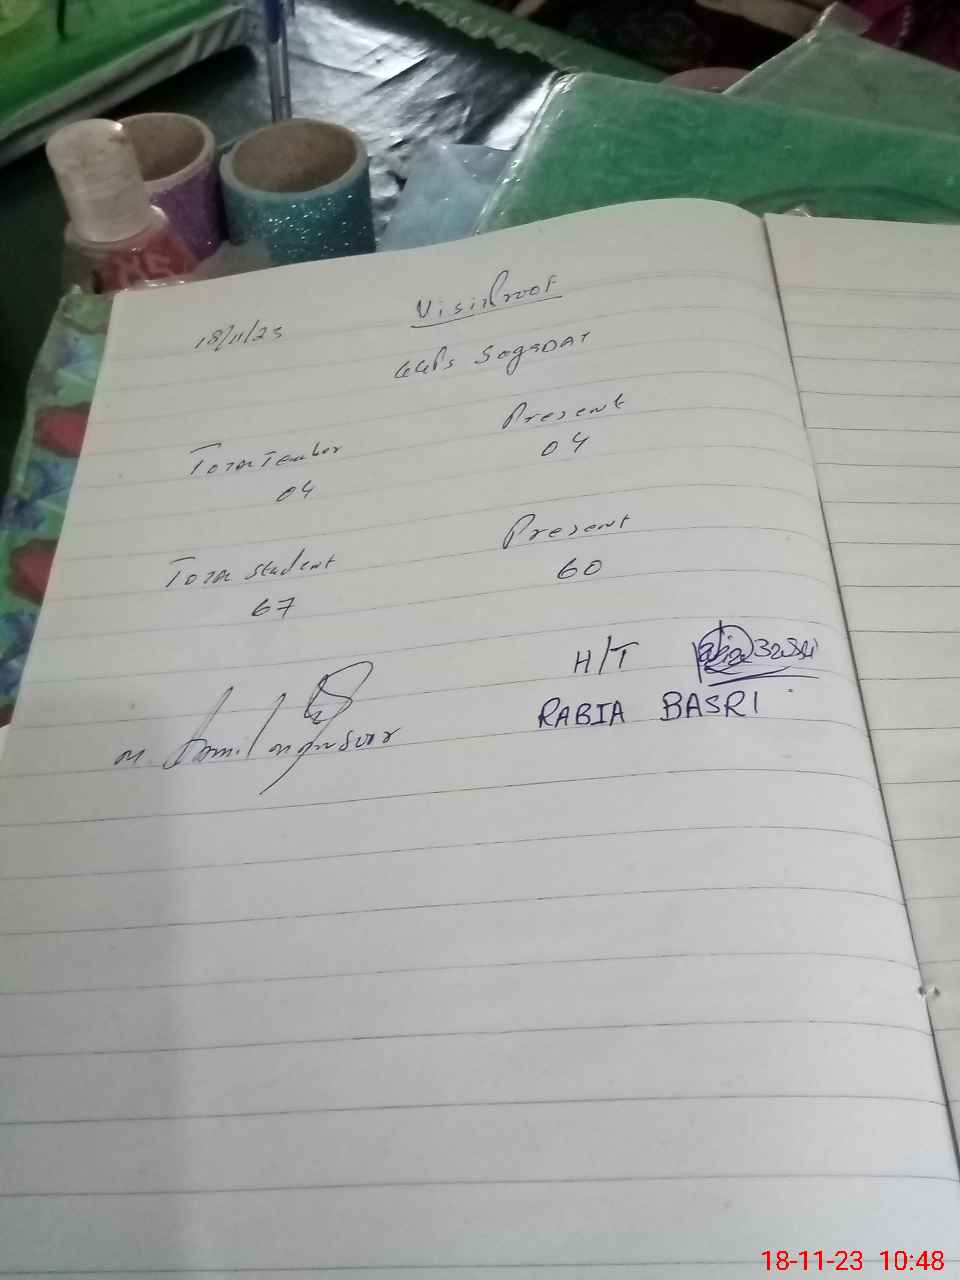 18/11/23
Visit Proof
GGPS SogaDAT
Total Teacher Present
04 04
Total student Present
67 60
H/T Rabia Basri
RABIA BASRI
M.
18-11-23 10:48